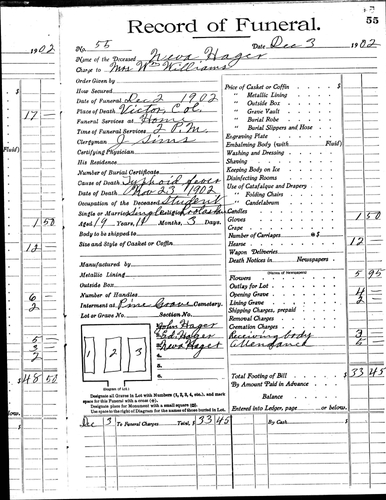 55
Record of Funeral.
1902
No. 55 Date Dec 3 1902
Name of the Deceased Neva Hager
Charge to Mrs Wm Williams
Order Given by
Hour Secured
Date of Funeral Dec 2 1902
Place of Death Victor Col.
Funeral Services at Home
Time of Funeral Services 2 P.M.
Clergyman J Sims
Certifying Physician
His Residence
Number of Burial Certificate
Cause of Death Typhoid fever
Date of Death Nov 23 1902
Occupation of the Deceased Student
Single or Married Single Religion
Aged 19 Years, 11 Months, 3 Days
Body to be shipped to
Size and Style of Casket or Coffin
Manufactured by
Metallic Lining
Outside Box
Number of Handles
Interment at Pine Grove Cemetery.
Lot or Grave No. Section No.
1 2 3
John Hager
Ed. Hager
Neva Hager
4.
5.
6.
(Diagram of Lot.)
Designate all Graves in Lot with Numbers (1, 2, 3, 4, etc.), and mark
space for this Funeral with a cross (+).
Designate place for Monument with a small square (□).
Use space to the right of Diagram for the names of those buried in Lot.
Dec 3 To Funeral Charges Total, $ 33 45
Price of Casket or Coffin
" Metallic Lining
" Outside Box
" Grave Vault
" Burial Robe
" Burial Slippers and Hose
Engraving Plate
Embalming Body (with Fluid)
Washing and Dressing
Shaving
Keeping Body on Ice
Disinfecting Rooms
Use of Catafalque and Drapery
" Folding Chairs
" Candelabrum
Candles
Gloves 1 50
Crape
Number of Carriages @ $
Hearse 12
Wagon Deliveries
Death Notices in Newspapers
(Names of Newspapers)
Flowers 5 95
Outlay for Lot
Opening Grave 4
Lining Grave 2
Shipping Charges, prepaid
Removal Charges
Cremation Charges
Receiving body 3
Attendance 5
Total Footing of Bill $ 33 45
By Amount Paid in Advance
Balance
Entered into Ledger, page or below.
By Cash $
1902
$
17
Fluid)
1 50
12
6
2
5
3
2
$ 48 50
below.
$